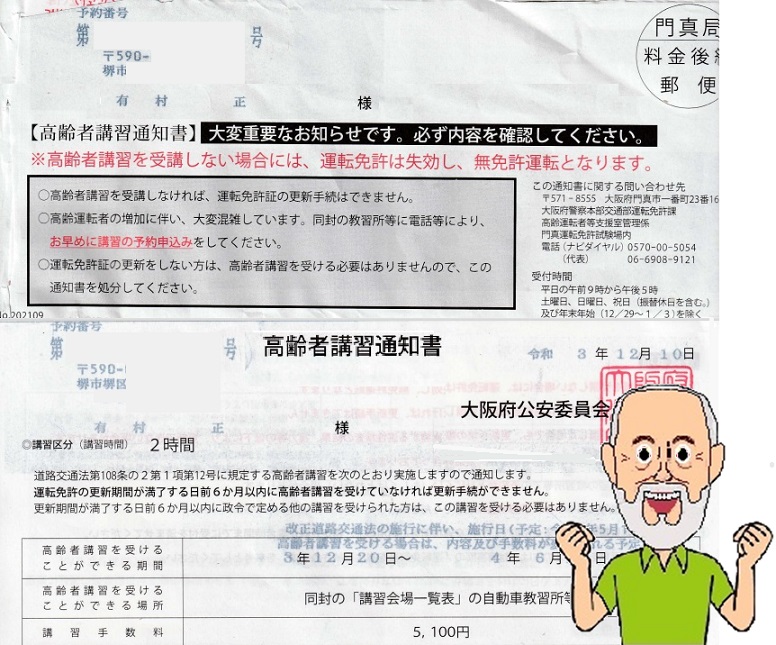 予約番号
第 号
〒590-
堺市
有 村 正 様
門真局
料金後納
郵 便
【高齢者講習通知書】 大変重要なお知らせです。必ず内容を確認してください。
※高齢者講習を受講しない場合には、運転免許は失効し、無免許運転となります。
○高齢者講習を受講しなければ、運転免許証の更新手続はできません。
○高齢運転者の増加に伴い、大変混雑しています。同封の教習所等に電話等により、
お早めに講習の予約申込みをしてください。
○運転免許証の更新をしない方は、高齢者講習を受ける必要はありませんので、この
通知書を処分してください。
この通知書に関する問い合わせ先
〒571-8555 大阪府門真市一番町23番16
大阪府警察本部交通部運転免許課
高齢運転者等支援室管理係
門真運転免許試験場内
電話（ナビダイヤル）0570-00-5054
（代表） 06-6908-9121
受付時間
平日の午前9時から午後5時
土曜日、日曜日、祝日（振替休日を含む。）
及び年末年始（12/29～1/3）を除く
No.202109
予約番号
第 号
〒590-
堺市堺区
有 村 正 様
高齢者講習通知書
令和 3 年 12月 10日
大阪府公安委員会
◎講習区分（講習時間） 2時間
道路交通法第108条の2第1項第12号に規定する高齢者講習を次のとおり実施しますので通知します。
運転免許の更新期間が満了する日前6か月以内に高齢者講習を受けていなければ更新手続ができません。
更新期間が満了する日前6か月以内に政令で定める他の講習を受けられた方は、この講習を受ける必要はありません。
改正道路交通法の施行に伴い、施行日(予定: 年5月1
高齢者講習を受ける場合は、内容及び手数料が れる予定
高齢者講習を受ける
ことができる期間
3年12月20日～ 4年 6月 日
高齢者講習を受ける
ことができる場所
同封の「講習会場一覧表」の自動車教習所等
講習手数料
5,100円